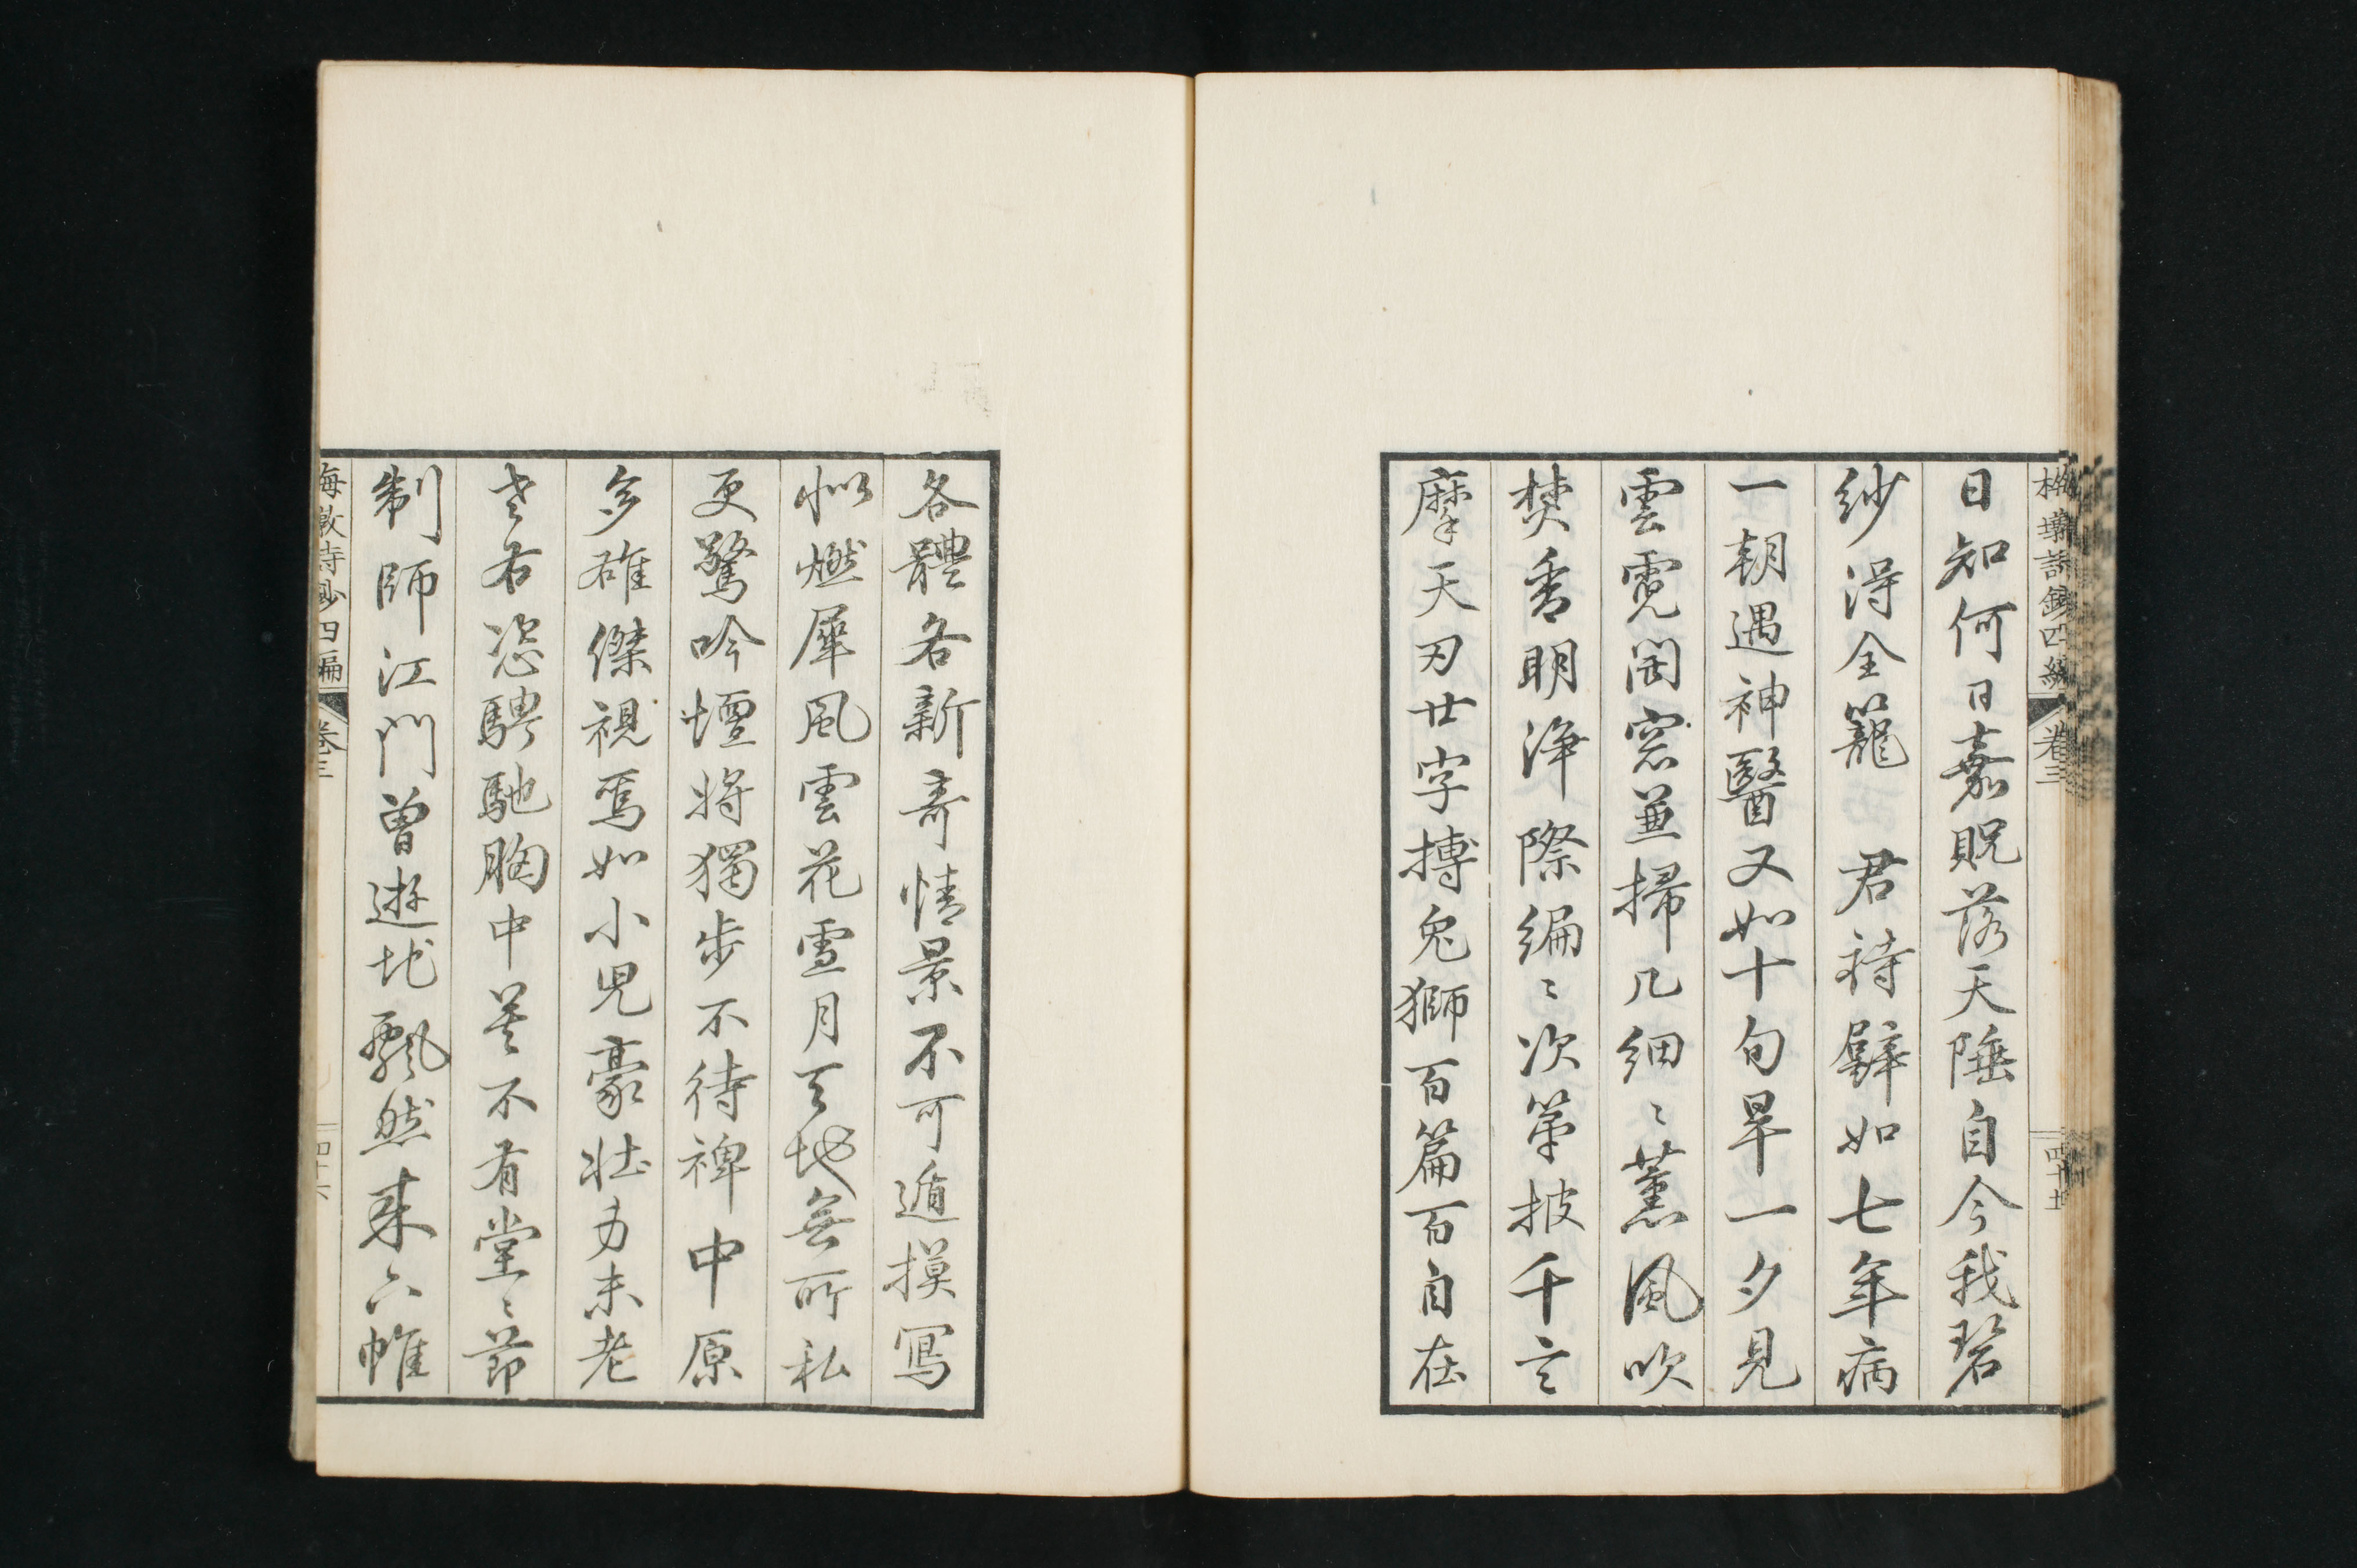 梅墩詩鈔四編 卷三 四十五
日知何日嘉貺落天陲自今我碧
紗得全籠 君詩譬如七年病
一朝遇神醫又如十旬旱一夕見
雲霓開窓並掃几細〻薫風吹
焚香明淨際編〻次第披千言
摩天刃廿字搏兔獅百篇百自在
各體各新奇情景不可遁摸寫
似燃犀風雲花雪月天地無所私
更驚吟壇將獨步不待裨中原
多雄傑視焉如小児豪壮力未老
左右恣騁馳胸中豈不有堂〻節
制師江門曽遊地飄然来六帷
梅墩詩鈔四編 卷三 四十六